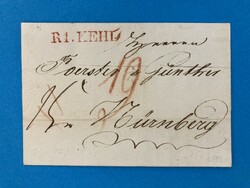 R1.KEHL
Herren
Foerster & Günther
19
Nürnberg